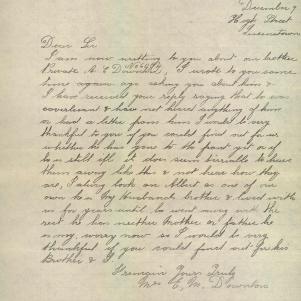 December 9
High Street
Queenstown
Dear Sir
I am now writting to you about our brother
Private A E Downton No 6694, I wrote to you some
time again ago asking you about him &
I have received your reply saying that
& have not heard anything of him
or had a letter from him I would be very
thankful to you if you could find out for us
whether he has gone to the front yet or if
he is still it does seem terrible to have
them away like this & not hear how they
are, I always look on Albert as one of our
own he is my Husbands brother & lived with us
for years until he went away with the
rest he has neither Mother or father he
is my worry now so I would be very
thankful if you could find out for his
Brother & I.
I remain Yours Truly
Mrs E. M. Downton